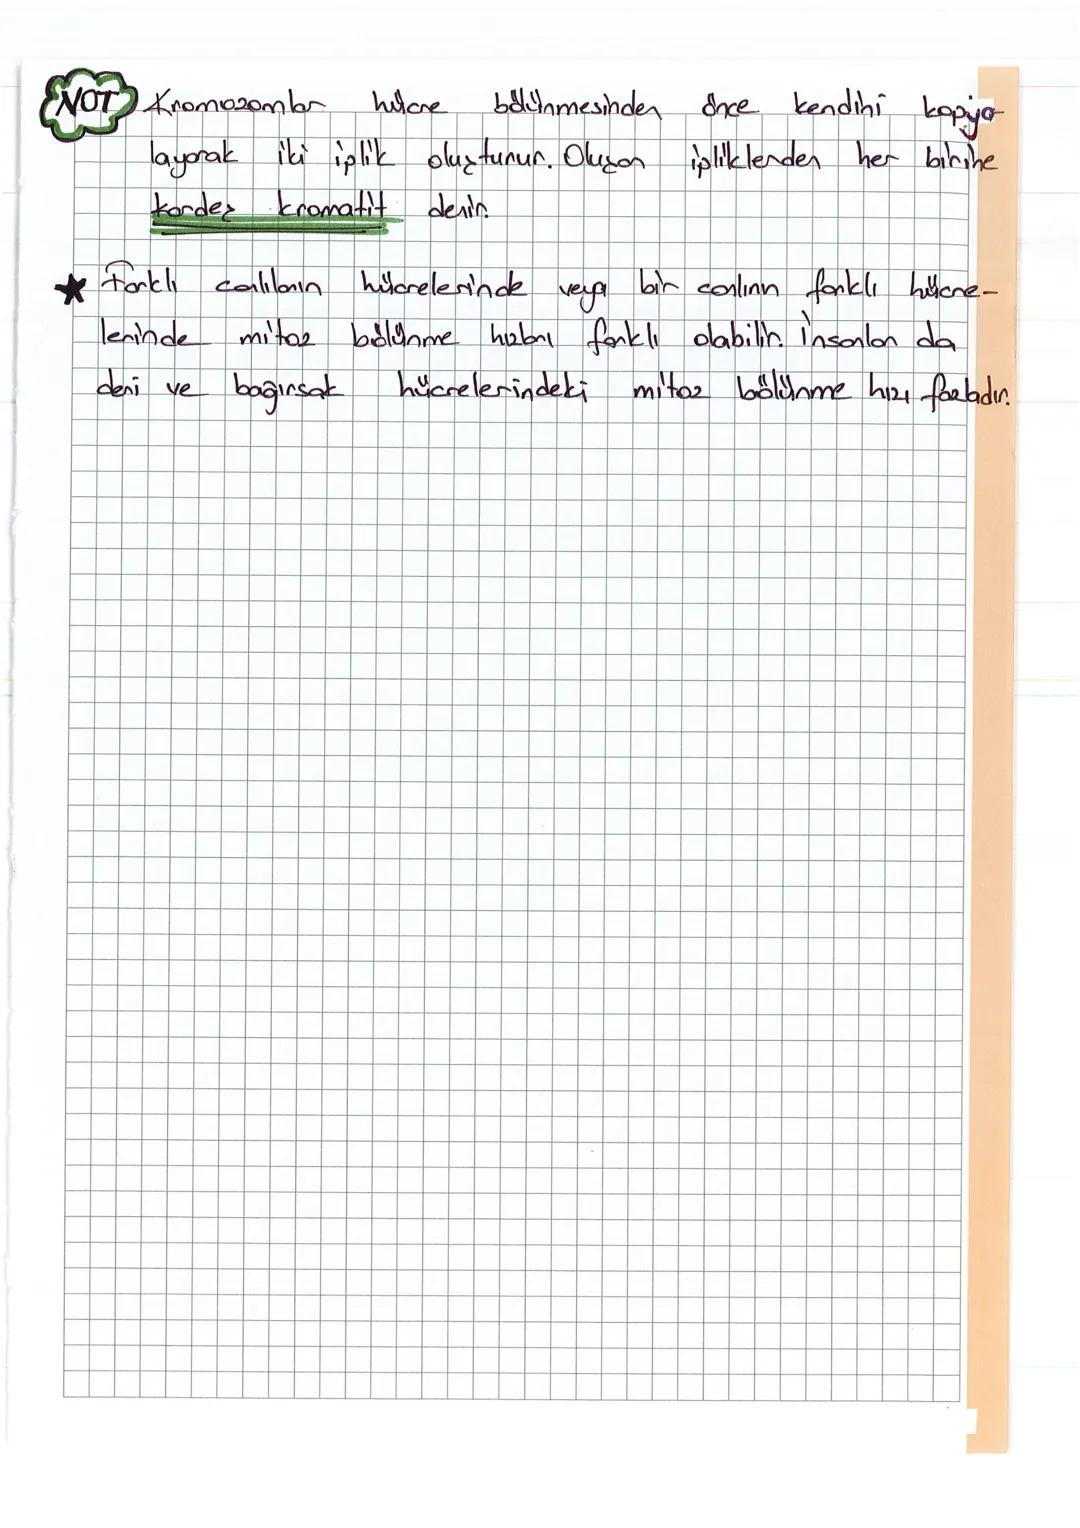 NOT Kromozomlar hücre bölünmesinden önce kendini kopya-
layarak iki iplik oluşturur. Oluşan ipliklerden her birine
kardeş kromatit denir.
★ Farklı canlıların hücrelerinde veya bir canlının farklı hücre-
lerinde mitoz bölünme hızları farklı olabilir. İnsanlar da
deri ve bağırsak hücrelerindeki mitoz bölünme hızı fazladır.